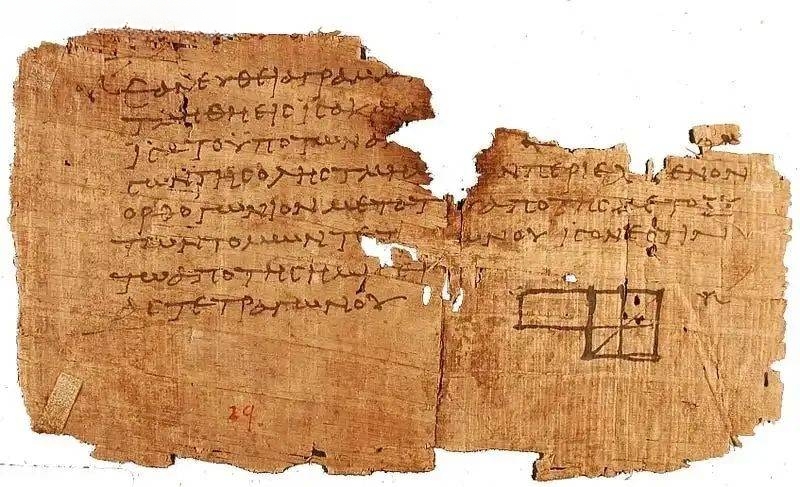 ΕΑΝ ΕΥΘΕΙΑ ΓΡΑΜΜ
ΤΜΗΘΗ ΕΙϹ ΙϹΑ ΚΑΙ
ΙϹΑ ΤΟ ΥΠΟ ΤΩΝ Α
ϹΩΝ ΤΗϹ ΟΛΗϹ ΤΜΗΜ ΩΝ ΠΕΡΙΕΧ ΕΝΟΝ
ΟΡΘΟΓΩΝΙΟΝ ΜΕΤΑ Τ ΑΠΟ ΤΗϹ ΜΕΤΟΞΥ
ΤΩΝ ΤΟΜΩΝ ΤΕΤ ΩΝΟΥ ΙϹΟΝ ΕϹΤΙΝ
ΤΩ ΑΠΟ ΤΗϹ ΗΜΙϹΕΙ
ΑϹ ΤΕΤΡΑΓΩΝΟΥ
29